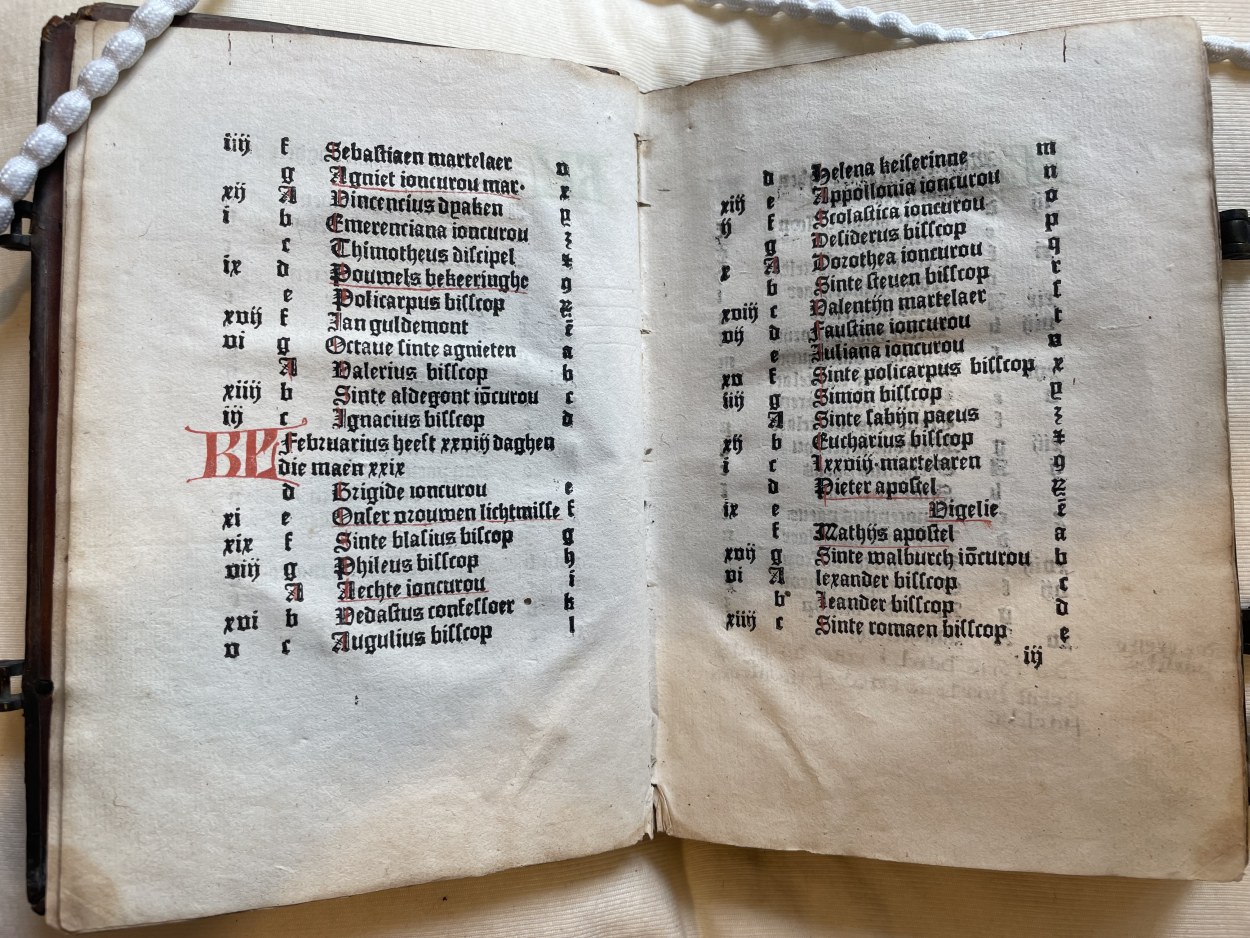 iiij f Sebastiaen martelaer v
g Agniet ioncurou mar· x
xij A Vincencius dyaken y
i b Emerenciana ioncurou z
c Thimotheus discipel
ix d Pouwels bekeeringhe 9
e Policarpus bisscop
xvij f Jan guldemont ē
vi g Octaue sinte agnieten a
A Valerius bisscop b
xiiij b Sinte aldegont iōcurou c
iij c Ignacius bisscop d
KL Februarius heeft xxviij daghen
die maen xxix
d Brigide ioncurou e
xi e Onser vrouwen lichtmisse f
xix f Sinte blasius biscop g
viij g Phileus bisscop h
A Aechte ioncurou i
xvi b Vedastus confessoer k
v c Augulius bisscop l
d Helena keiserinne m
xiij e Appollonia ioncurou n
ij f Scolastica ioncurou o
g Desiderus bisscop p
x A Dorothea ioncurou q
b Sinte steuen bisscop r
xviij c Valentijn martelaer s
vij d Faustine ioncurou t
e Juliana ioncurou v
xv f Sinte policarpus bisscop x
iiij g Simon bisscop y
A Sinte sabijn paeus z
xij b Eucharius bisscop
i c lxxviij·martelaren 9
d Pieter apostel
ix e Vigelie ē
f Mathijs apostel a
xvij g Sinte walburch iōcurou b
vi A lexander bisscop c
b Leander bisscop d
xiiij c Sinte romaen bisscop e
iij